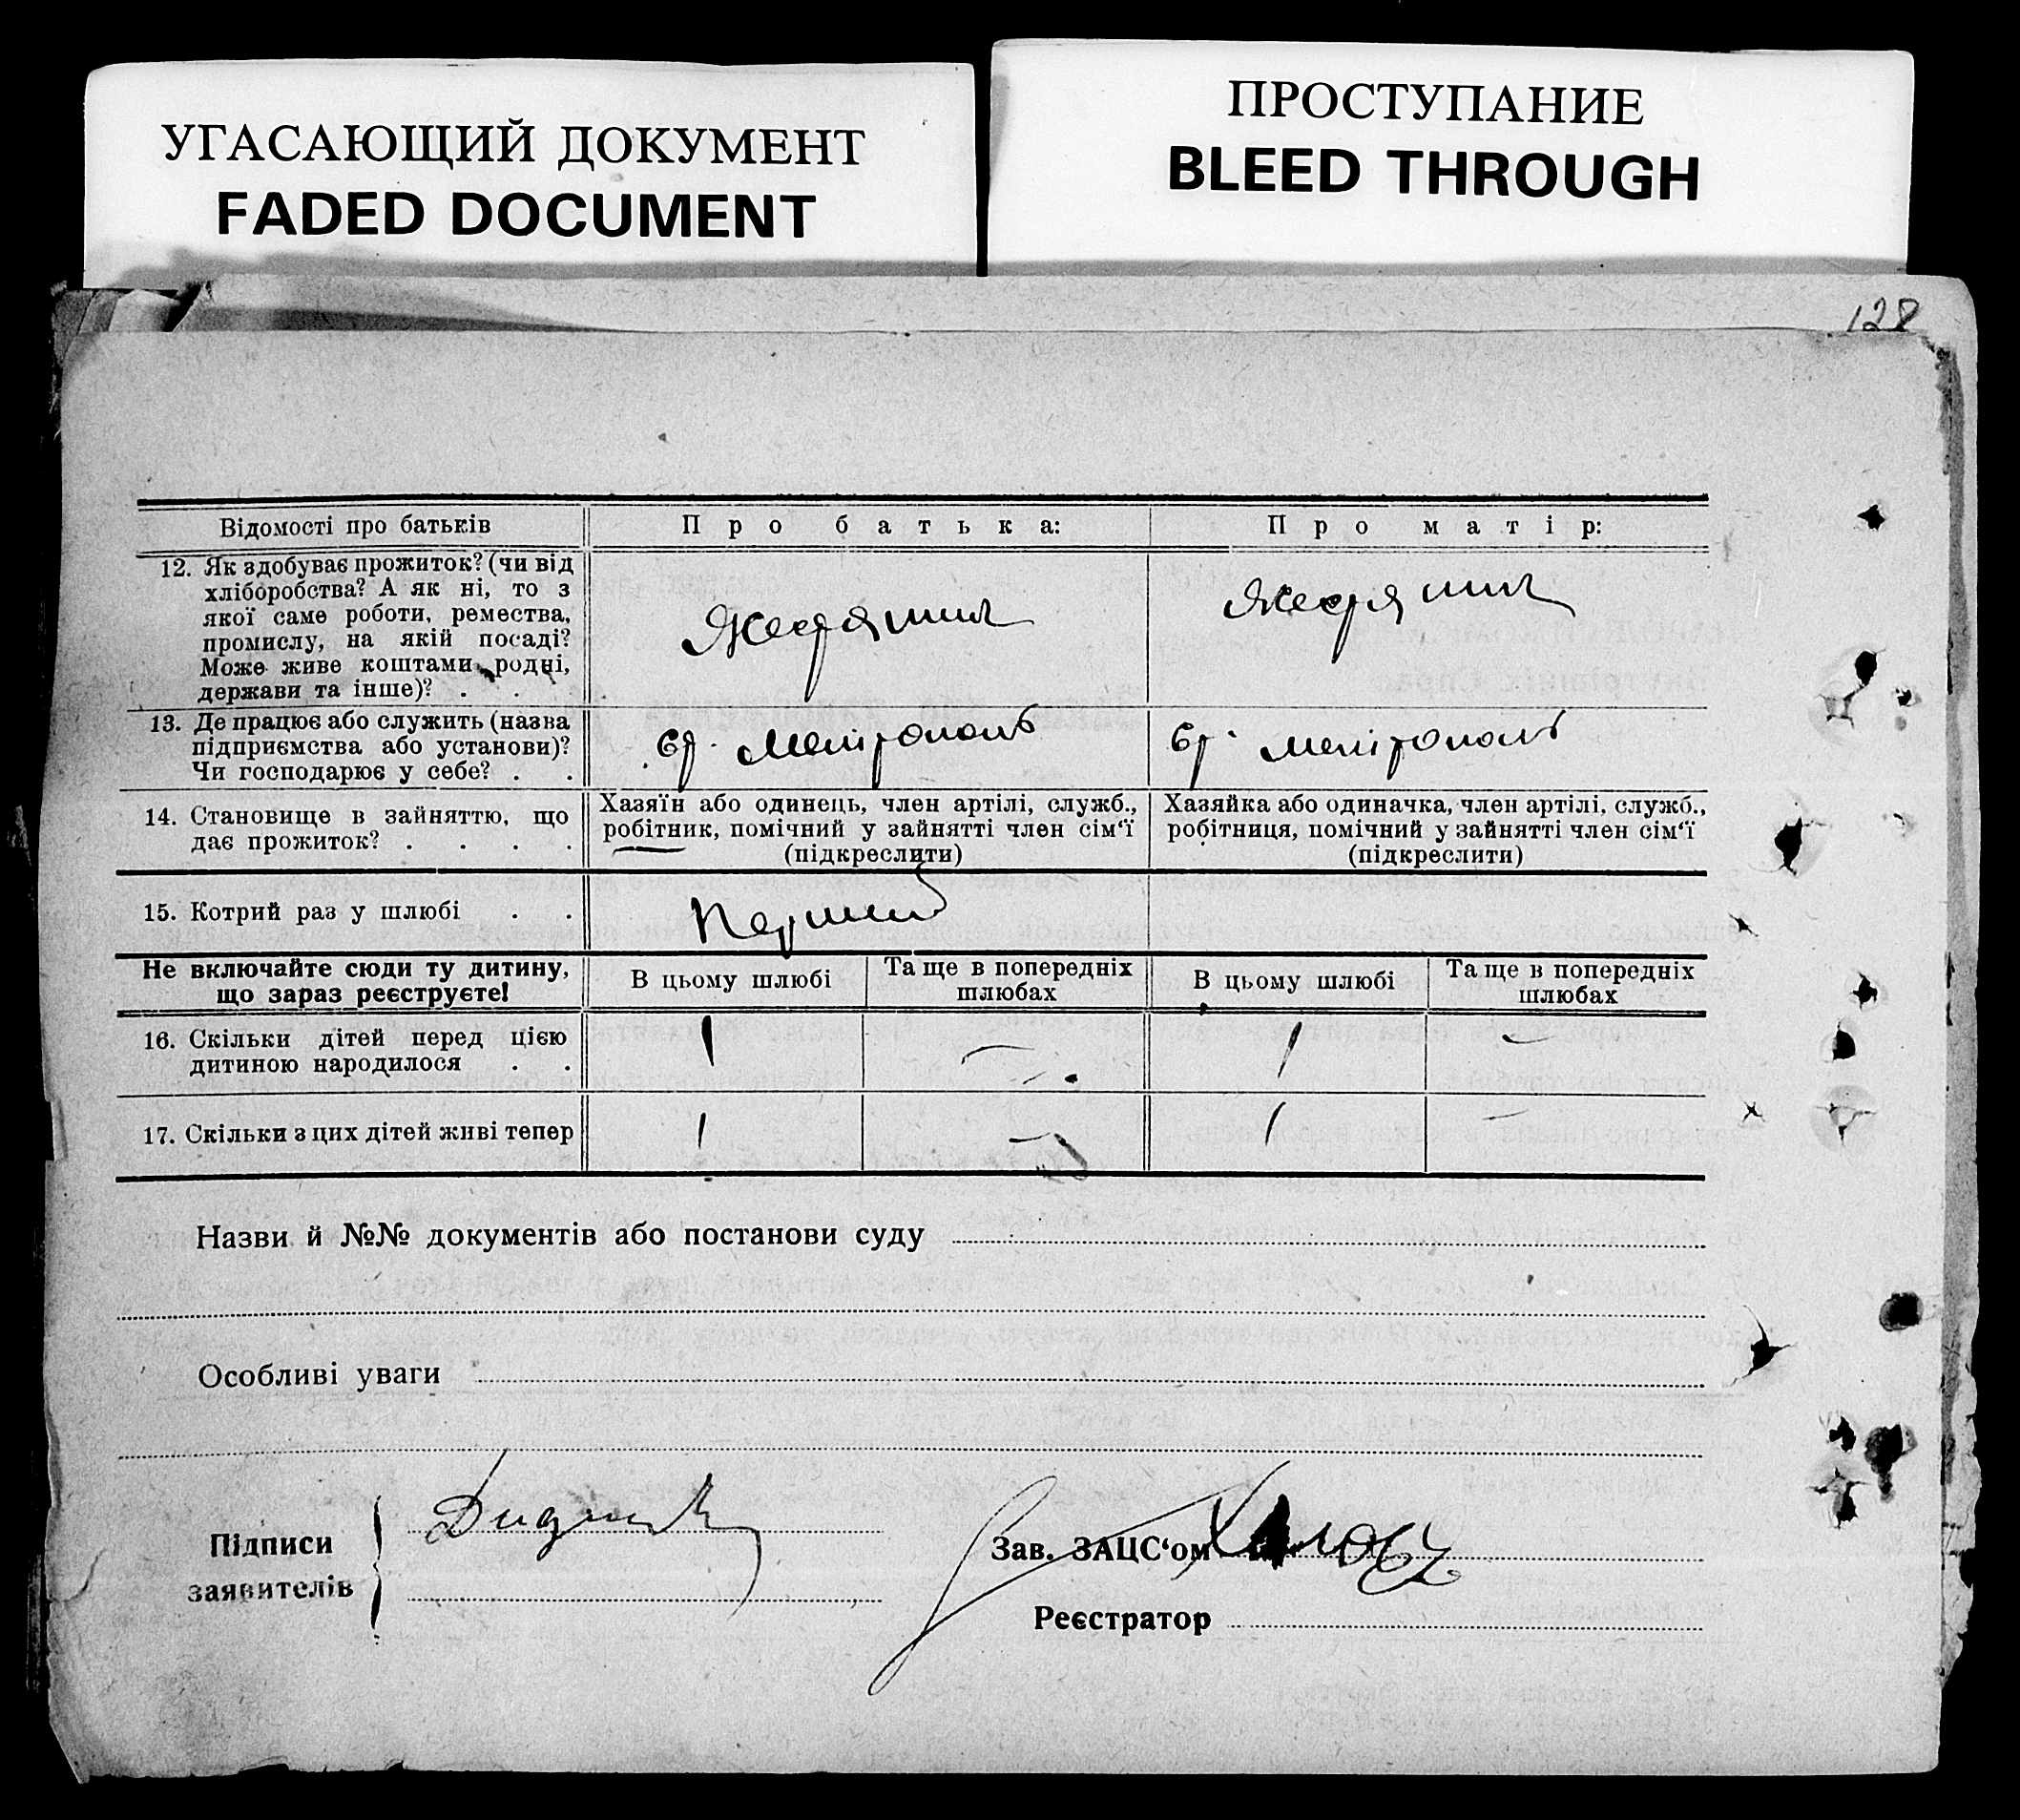 УГАСАЮЩИЙ ДОКУМЕНТ
FADED DOCUMENT
ПРОСТУПАНИЕ
BLEED THROUGH
128
Відомості про батьків
Про батька:
Про матір:
12. Як здобуває прожиток? (чи від
хліборобства? А як ні, то з
якої саме роботи, ремества,
промислу, на якій посаді?
Може живе коштами родні,
держави та інше)? . . .
13. Де працює або служить (назва
підприємства або установи)?
Чи господарює у себе? . .
Мелітополь
Мелітополь
14. Становище в зайняттю, що
дає прожиток? . . . .
Хазяїн або одинець, член артілі, служб.,
робітник, помічний у зайнятті член сім‘ї
(підкреслити)
Хазяйка або одиначка, член артілі, служб.,
робітниця, помічний у зайнятті член сім‘ї
(підкреслити)
15. Котрий раз у шлюбі . .
Перший
Не включайте сюди ту дитину,
що зараз реєструєте!
В цьому шлюбі
Та ще в попередніх
шлюбах
В цьому шлюбі
Та ще в попередніх
шлюбах
16. Скільки дітей перед цією
дитиною народилося . .
1 — 1 —
17. Скільки з цих дітей живі тепер
1 — 1 —
Назви й №№ документів або постанови суду
Особливі уваги
Підписи
заявителів
Зав. ЗАЦС‘ом
Реєстратор